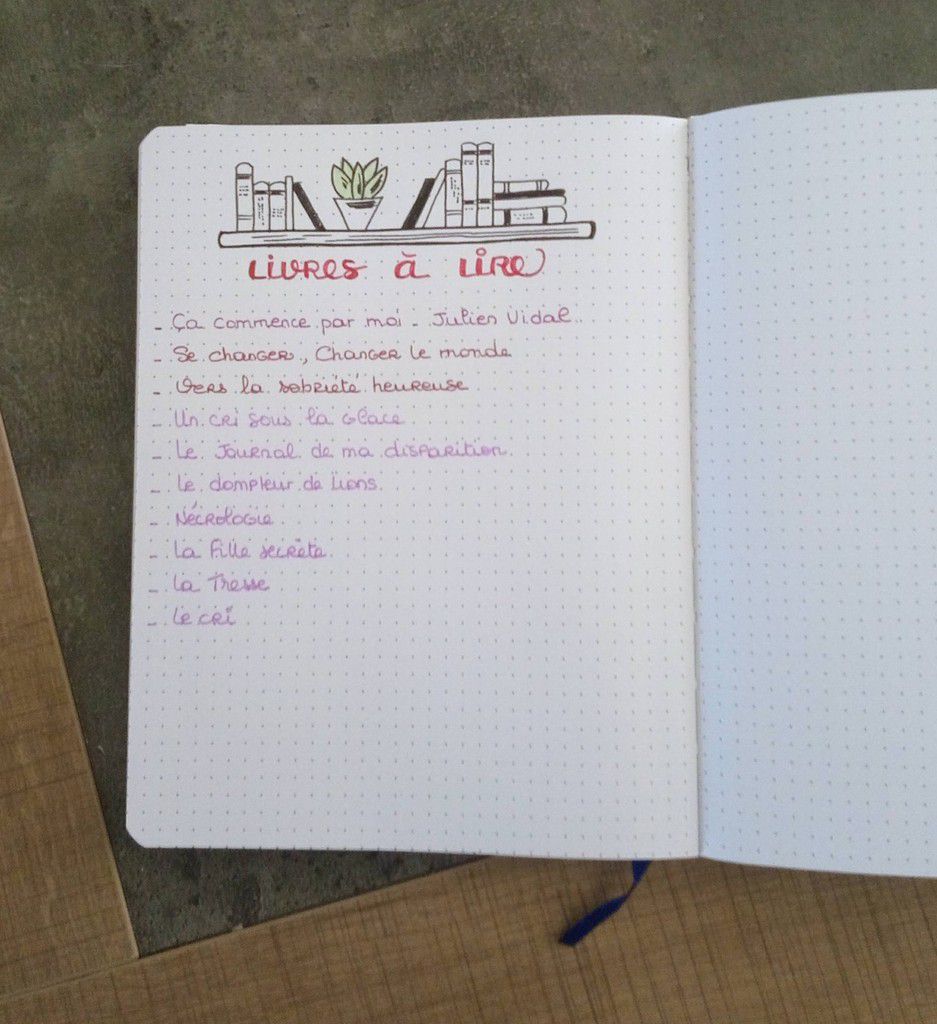 Livres à Lire
- Ça commence par moi - Julien Vidal
- Se changer, Changer le monde
- Vers la sobriété heureuse
- Un cri sous la Glace
- Le Journal de ma disparition
- Le dompteur de Lions
- Nécrologie
- La Fille secrète
- La Tresse
- Le cri